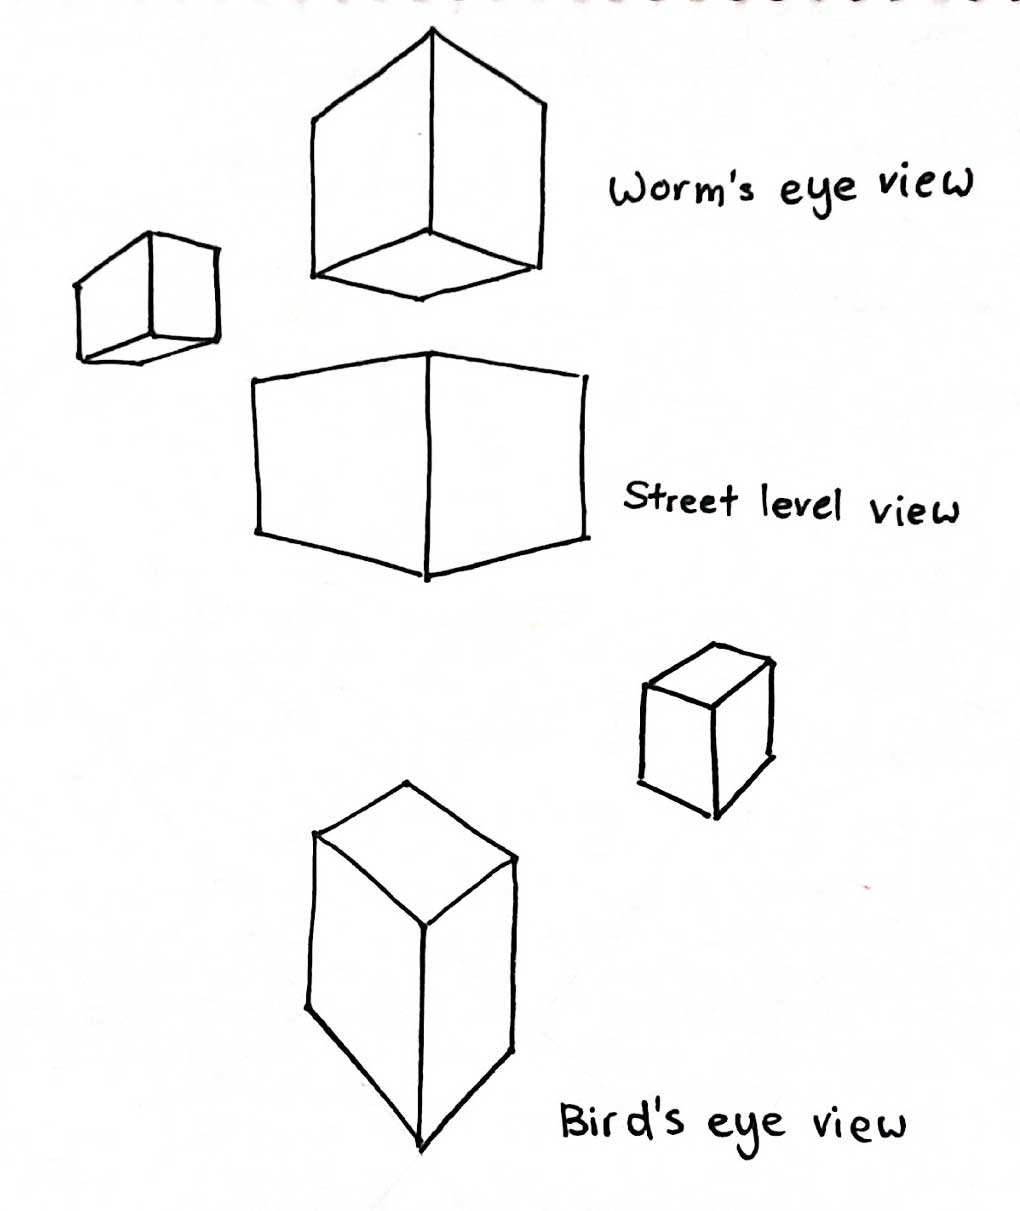 Worm's eye view
Street level view
Bird's eye view